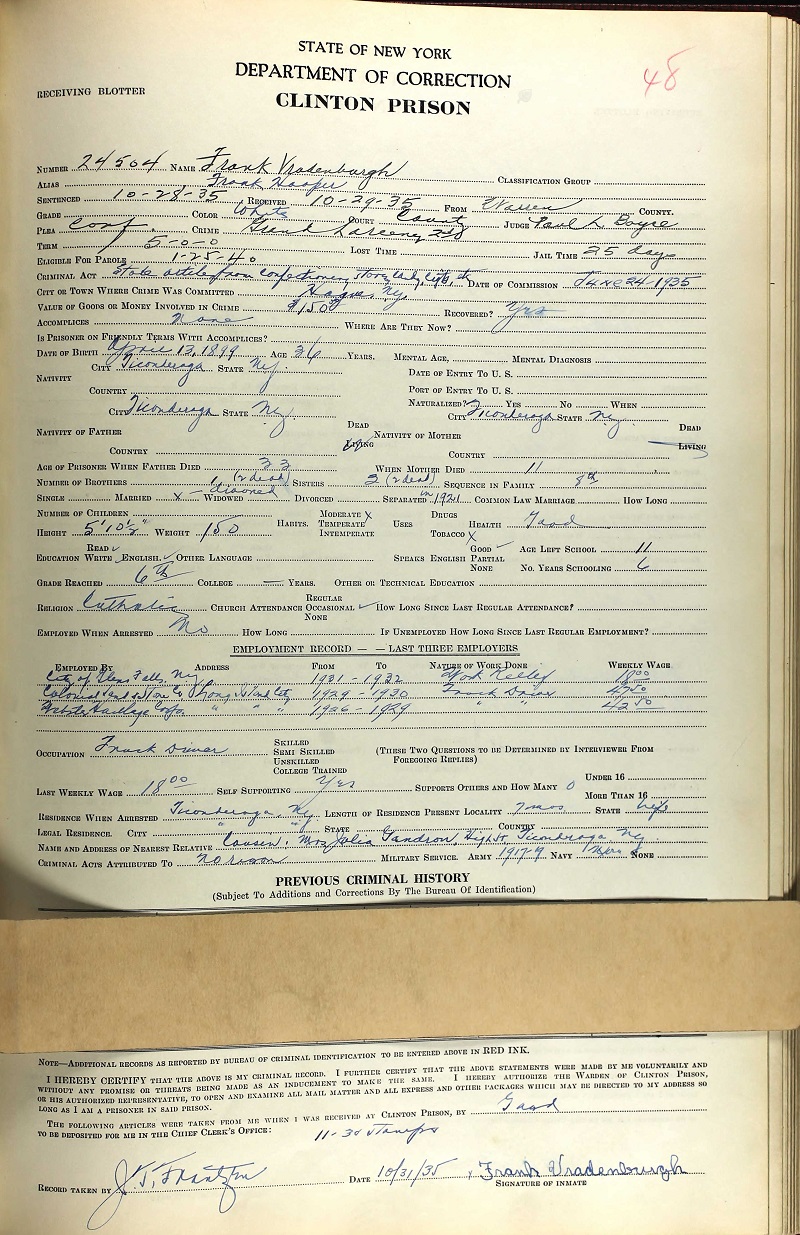 STATE OF NEW YORK
DEPARTMENT OF CORRECTION
CLINTON PRISON
48
RECEIVING BLOTTER
NUMBER 24504 NAME Frank Vradenburgh
ALIAS Frank Hooper CLASSIFICATION GROUP
SENTENCED 10-28-35 RECEIVED 10-29-35 FROM Warren COUNTY.
GRADE COLOR White COURT County JUDGE Paul L Boyce
PLEA Conf. CRIME Grand Larceny 2nd
TERM 5-0-0 LOST TIME JAIL TIME 25 days
ELIGIBLE FOR PAROLE 1-25-40
CRIMINAL ACT Stole articles from confectionery store DATE OF COMMISSION June 24-1935
CITY OR TOWN WHERE CRIME WAS COMMITTED Hague, Ny.
VALUE OF GOODS OR MONEY INVOLVED IN CRIME RECOVERED? Yes
ACCOMPLICES None WHERE ARE THEY NOW?
IS PRISONER ON FRIENDLY TERMS WITH ACCOMPLICES?
DATE OF BIRTH April 13, 1899 AGE 36 YEARS, MENTAL AGE, MENTAL DIAGNOSIS
CITY Ticonderoga STATE Ny. DATE OF ENTRY TO U. S.
NATIVITY
COUNTRY PORT OF ENTRY TO U. S.
NATURALIZED? YES NO WHEN
CITY Ticonderoga STATE Ny CITY Ticonderoga STATE Ny
NATIVITY OF FATHER DEAD LIVING NATIVITY OF MOTHER DEAD LIVING
COUNTRY COUNTRY
AGE OF PRISONER WHEN FATHER DIED 33 WHEN MOTHER DIED 11
NUMBER OF BROTHERS 1 (2 dead) SISTERS 3 (2 dead) SEQUENCE IN FAMILY 8th
SINGLE MARRIED x - divorced WIDOWED DIVORCED SEPARATED in 1921 COMMON LAW MARRIAGE HOW LONG
NUMBER OF CHILDREN
HEIGHT 5' 10½" WEIGHT 150 HABITS. MODERATE X TEMPERATE INTEMPERATE USES DRUGS TOBACCO X HEALTH Good
EDUCATION READ ✓ WRITE ENGLISH ✓ OTHER LANGUAGE SPEAKS ENGLISH GOOD ✓ PARTIAL NONE AGE LEFT SCHOOL 11
NO. YEARS SCHOOLING 6
GRADE REACHED 6th COLLEGE — YEARS. OTHER OR TECHNICAL EDUCATION
RELIGION Catholic CHURCH ATTENDANCE REGULAR OCCASIONAL ✓ NONE HOW LONG SINCE LAST REGULAR ATTENDANCE?
EMPLOYED WHEN ARRESTED No HOW LONG IF UNEMPLOYED HOW LONG SINCE LAST REGULAR EMPLOYMENT?
EMPLOYMENT RECORD — — LAST THREE EMPLOYERS
EMPLOYED BY ADDRESS FROM TO NATURE OF WORK DONE WEEKLY WAGE
City of Glens Falls, Ny. 1931 - 1932 Work Relief 18 00
Colonial Sand & Stone Co Long Island City 1929 - 1930 Truck Driver 47 50
Haulage Corp. " " " 1926 - 1929 " " 42 50
OCCUPATION Truck Driver SKILLED SEMI SKILLED UNSKILLED COLLEGE TRAINED (THESE TWO QUESTIONS TO BE DETERMINED BY INTERVIEWER FROM FOREGOING REPLIES)
LAST WEEKLY WAGE 18 00 SELF SUPPORTING Yes SUPPORTS OTHERS AND HOW MANY 0 UNDER 16
MORE THAN 16
RESIDENCE WHEN ARRESTED Ticonderoga, Ny LENGTH OF RESIDENCE PRESENT LOCALITY 7 mos STATE Life
LEGAL RESIDENCE. CITY " STATE " COUNTRY
NAME AND ADDRESS OF NEAREST RELATIVE Cousin: Mrs Julia Gandron, High St Ticonderoga Ny.
CRIMINAL ACTS ATTRIBUTED TO No reason MILITARY SERVICE. ARMY 1917-9 NAVY NONE
PREVIOUS CRIMINAL HISTORY
(Subject To Additions and Corrections By The Bureau Of Identification)
NOTE—ADDITIONAL RECORDS AS REPORTED BY BUREAU OF CRIMINAL IDENTIFICATION TO BE ENTERED ABOVE IN RED INK.
I HEREBY CERTIFY THAT THE ABOVE IS MY CRIMINAL RECORD. I FURTHER CERTIFY THAT THE ABOVE STATEMENTS WERE MADE BY ME VOLUNTARILY AND
WITHOUT ANY PROMISE OR THREATS BEING MADE AS AN INDUCEMENT TO MAKE THE SAME. I HEREBY AUTHORIZE THE WARDEN OF CLINTON PRISON,
OR HIS AUTHORIZED REPRESENTATIVE, TO OPEN AND EXAMINE ALL MAIL MATTER AND ALL EXPRESS AND OTHER PACKAGES WHICH MAY BE DIRECTED TO MY ADDRESS SO
LONG AS I AM A PRISONER IN SAID PRISON.
THE FOLLOWING ARTICLES WERE TAKEN FROM ME WHEN I WAS RECEIVED AT CLINTON PRISON, BY Gaad
TO BE DEPOSITED FOR ME IN THE CHIEF CLERK'S OFFICE: 11-3¢ stamps
RECORD TAKEN BY DATE 10/31/35, Frank Vradenburgh
SIGNATURE OF INMATE